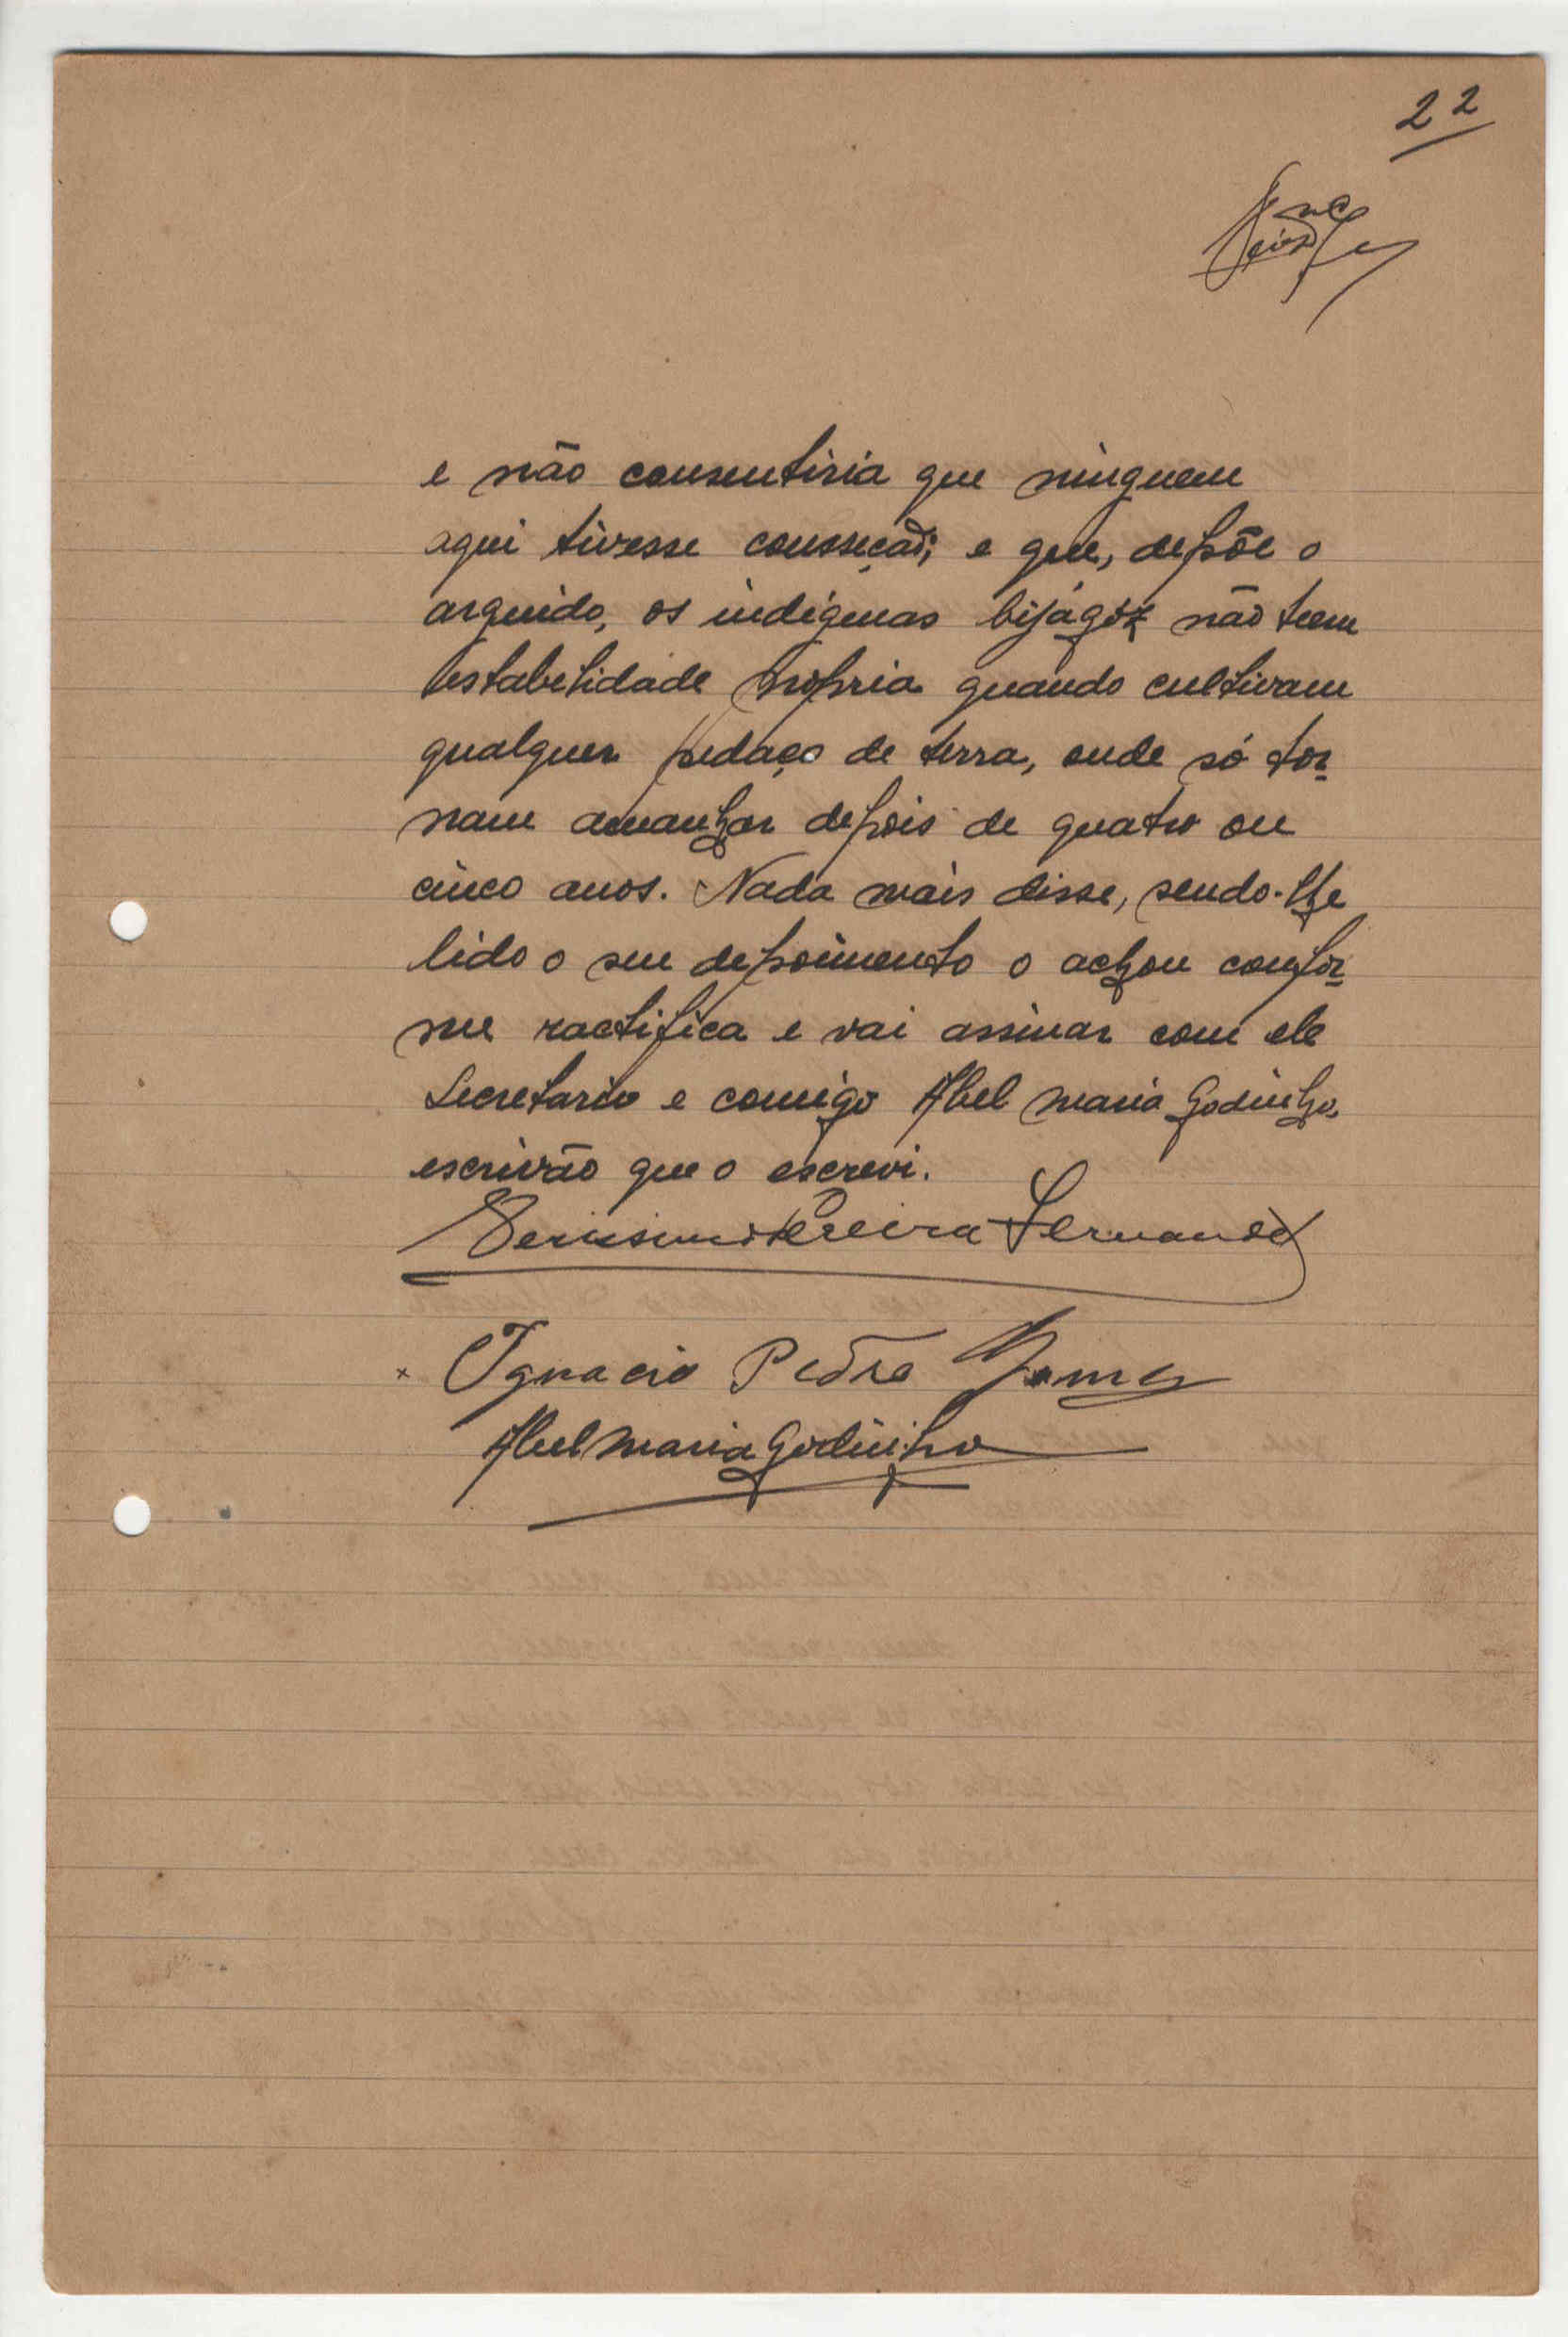 22
e não consentiria que ninguem
aqui tivesse consseção; e que, depõe o
arguido, os indigenas bijágóz não teem
estabelidade propria quando cultivam
qualquer pedaço de terra, onde só tor-
nam amanhar depois de quatro ou
cinco anos. Nada mais disse, sendo-lhe
lido o seu depoimento o achou confor-
me ractifica e vai assinar com ele
Secretario e comigo Abel Maria Godinho,
escrivão que o escrevi.
Verissimo Pereira Fernandes
x Ignacio Pedro Gomes
Abel Maria Godinho